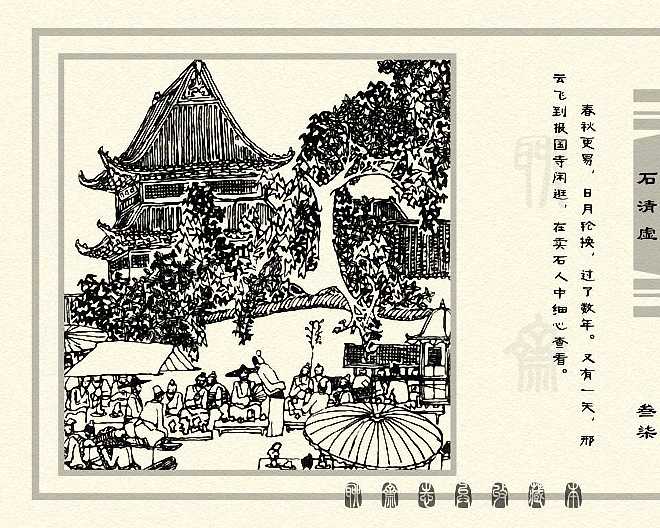 石清虚
叁柒
春秋更易，日月轮换，过了数年。又有一天，邢
云飞到报国寺闲逛，在卖石人中细心查看。
聊斋志异收藏本